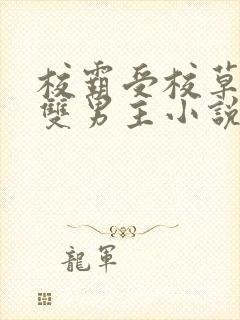 校霸受校草
雙男主小說
龍軍